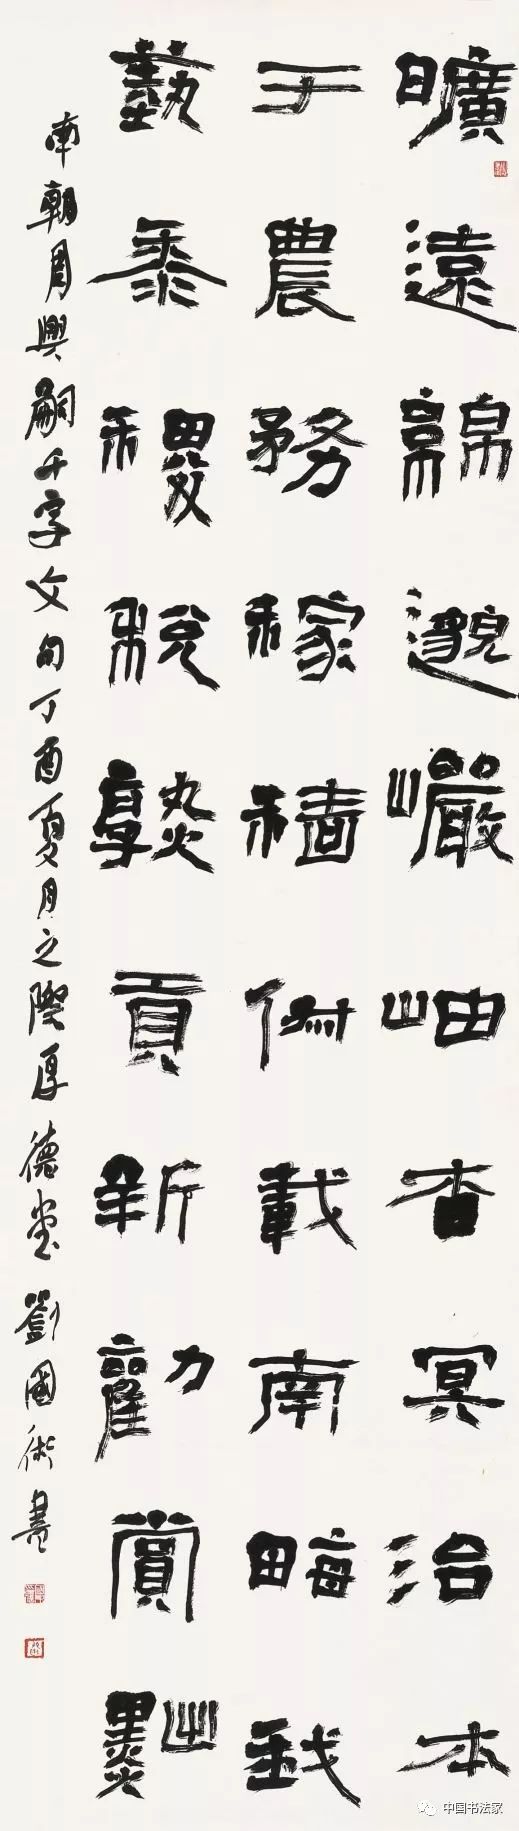 曠遠綿邈巖岫杳冥治本
于農務稼穡俶載南畮我
蓺黍稷稅孰貢新勸賞黜
南朝周興嗣千字文句丁酉夏月之際厚德堂劉國術書
中国书法家